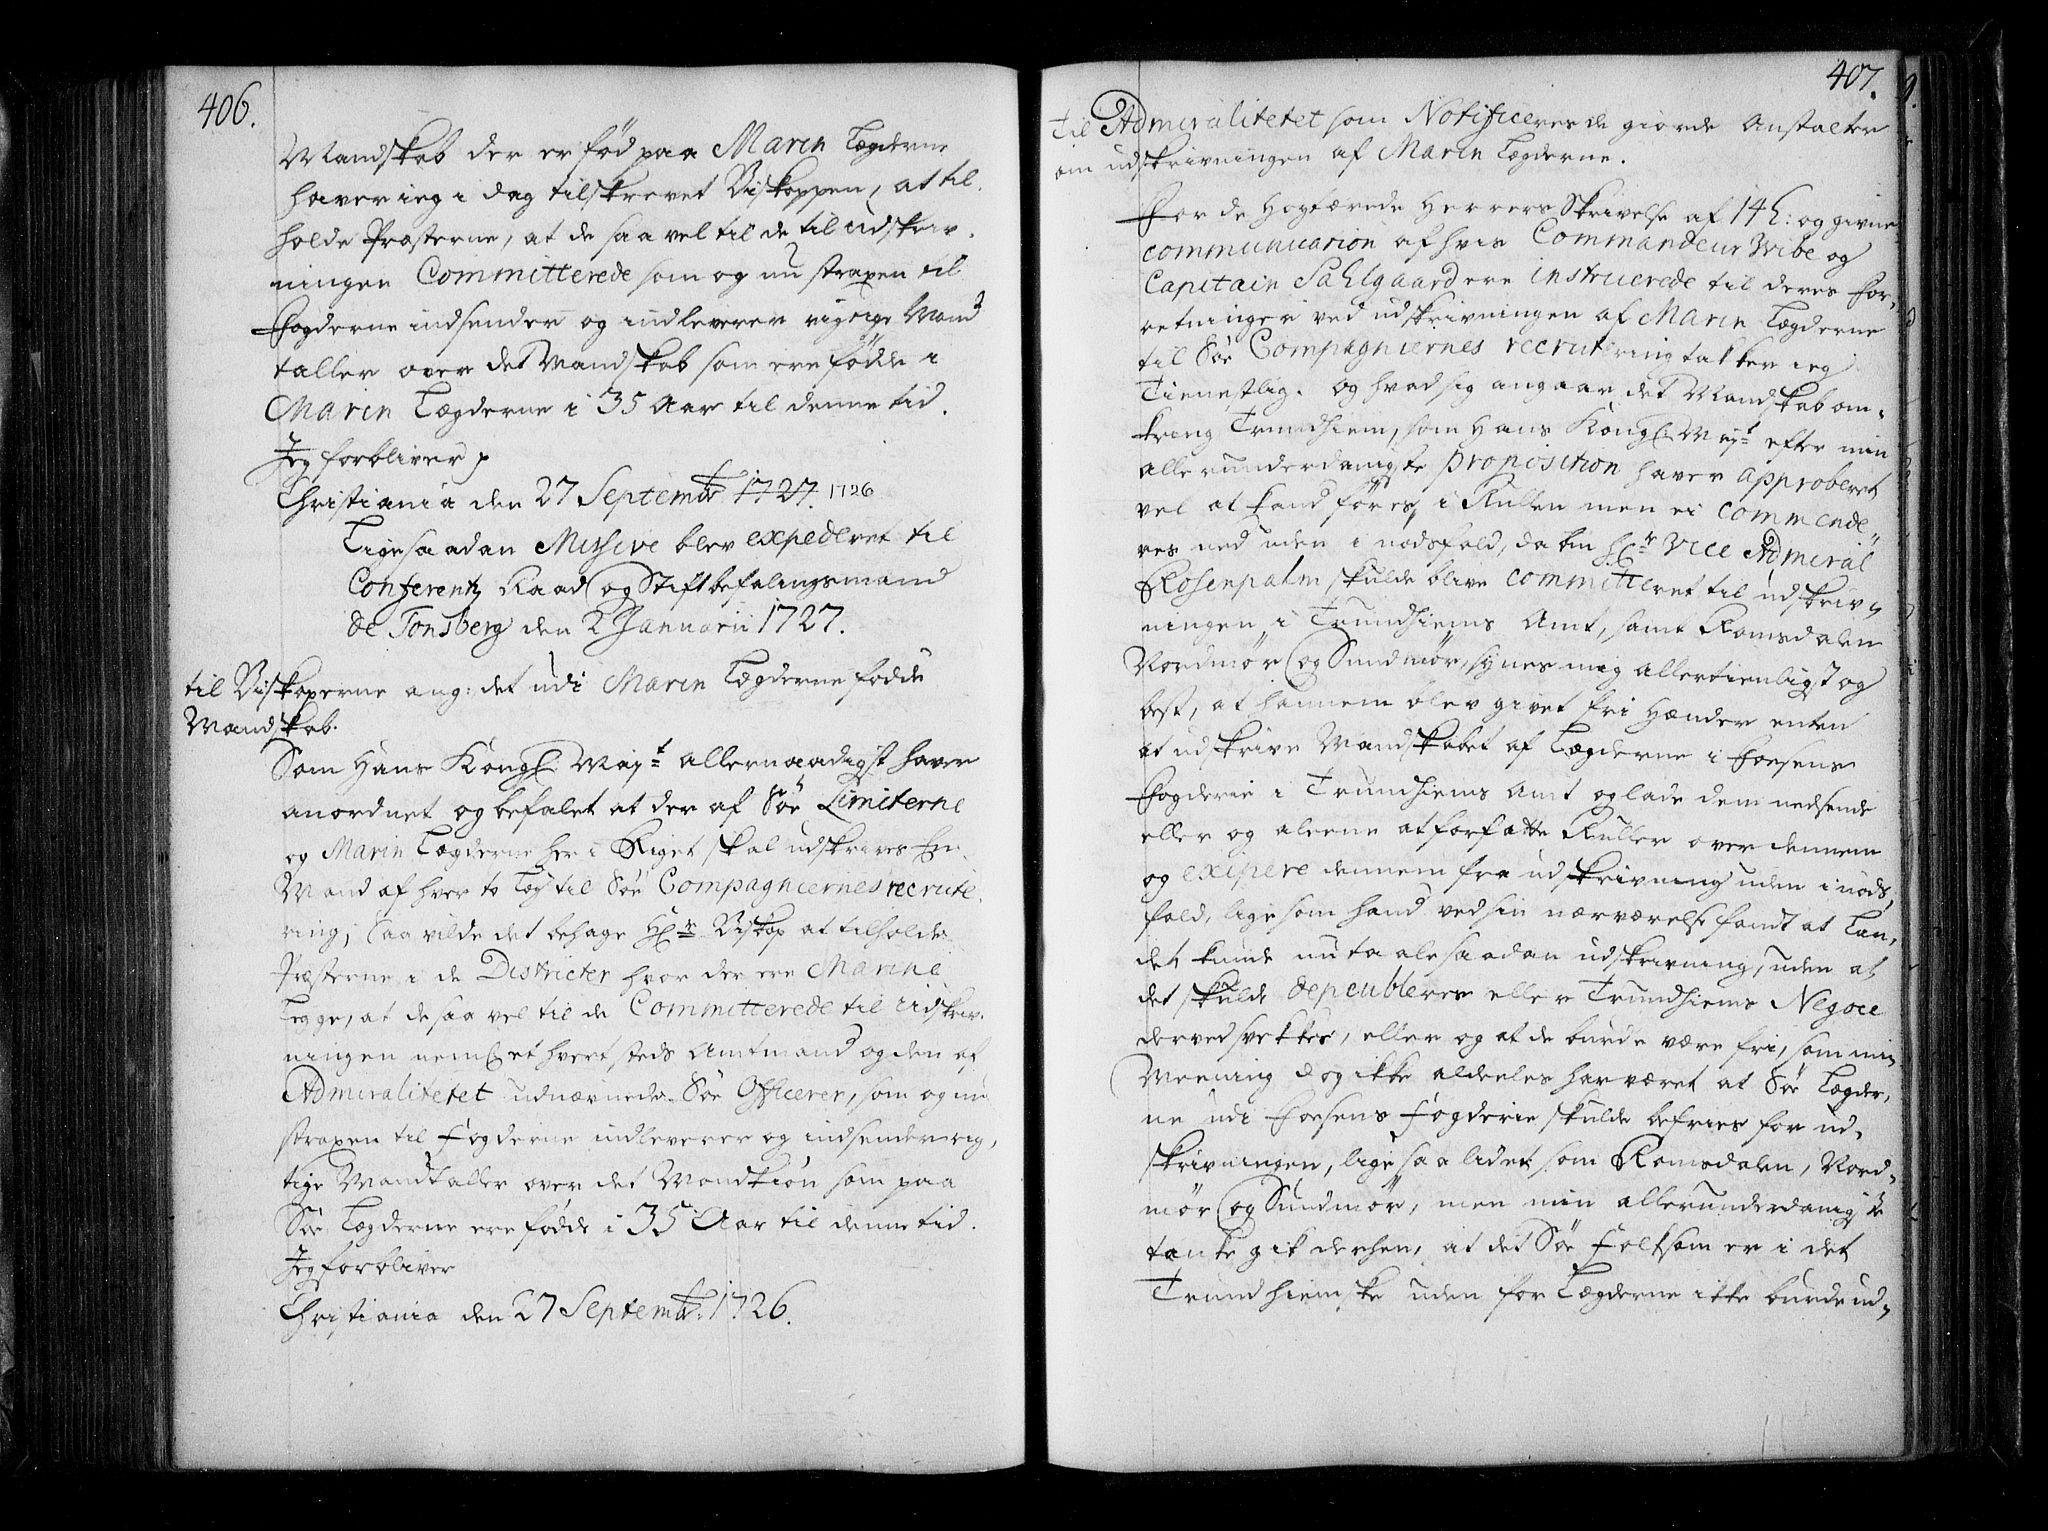 406.
Mandskab der er fød paa Marin Lægderne
haver ieg i dag tilskrevet Biskoppen, at til-
holde Præsterne, at de saa vel til de til udskriv-
ningen Committerede som og nu straxen til
Fogderne indsender og indleverer rigtige Mand
taller over det Mandskab som ere fødde i
Marin Lægderne i 35 Aar til denne tid.
Jeg forbliver p
Christiania den 27 Septembr 1727. 1726
Ligesaadan Missive blev expederet til
Conferentz Raad og Stiftbefalingsmand
de Tonsberg den 2 Januarii 1727.
til Biskoperne ang: det udi Marin Lægderne fødde
Mandskab.
Som Hans Kongl. Mayt allernaadigst haver
anordnet og befalet at der af Søe Limiterne
og Marin Lægderne her i Riget skal udskrives En
Mand af hver to Læg til Søe Compagniernes recrute-
ring; Saa vilde det behage Hr Biskop at tilholde
Præsterne i de Districter hvor der ere Marine
Legge, at de saa vel til de Committerede til udskriv-
ningen neml. et hvert steds Amtmand og den af
Admiralitetet udnævnede Søe Officerer, som og nu
straxen til Fogderne indleverer og indsender rig-
tige Mandtaller over det Mandkiøn som paa
Søe Lægderne ere fødde i 35 Aar til denne tid.
Jeg forbliver
Christiania den 27 Septembr 1726.
407.
til Admiralitetet som Notificeres de giorde Anstalter
om udskrivningen af Marin Lægderne.
For de Høgtærede Herrers Skrivelse af 14 h: og givne
communication af hvis Commandeur Wibe og
Capitain Sahlgaard ere instruerede til deres For-
retninger ved udskrivningen af Marin Lægderne
til Søe Compagniernes recrutering takker ieg
Tienestlig. og hvad sig angaar det Mandskab om-
kring Trundhiem, som Hans Kongl. Mayt efter min
allerunderdanigste proposition haver approberet
vel at kand føres i Rullen men ei commende-
res ned uden i nødsfald, da om Hr Vice Admiral
Rosenpalm skulde blive committeret til udskriv-
ningen i Trundhiems Amt, samt Romsdalen
Nordmør og Sundmør, synes mig allertienligst og
best, at hannem blev givet fri Hænder enten
at udskrive Mandskabet af Lægderne i Fosens
Fogderie i Trundhiems Amt og lade dem nedsende
eller og aleene at forfatte Ruller over dennem
og exipere dennem fra udskrivning uden i nøds
fald, lige som hand ved sin nærværelse fandt at Lan-
det kunde nu taale saadan udskrivning, uden at
det skulde depeubleres eller Trundhiems Negoce
derved svekkes, eller og at de burde være fri, som min
Meening dog ikke aldeles har været at Søe Lægder-
ne udi Fosens Fogderie skulde befries for ud-
skrivningen, lige saa lidet som Romsdalen, Nord-
mør og Sundmør, men min allerunderdanigste
tanke gik derhen, at det Søe Folk som er i det
Trundhiemske uden for Lægderne ikke burde ud-